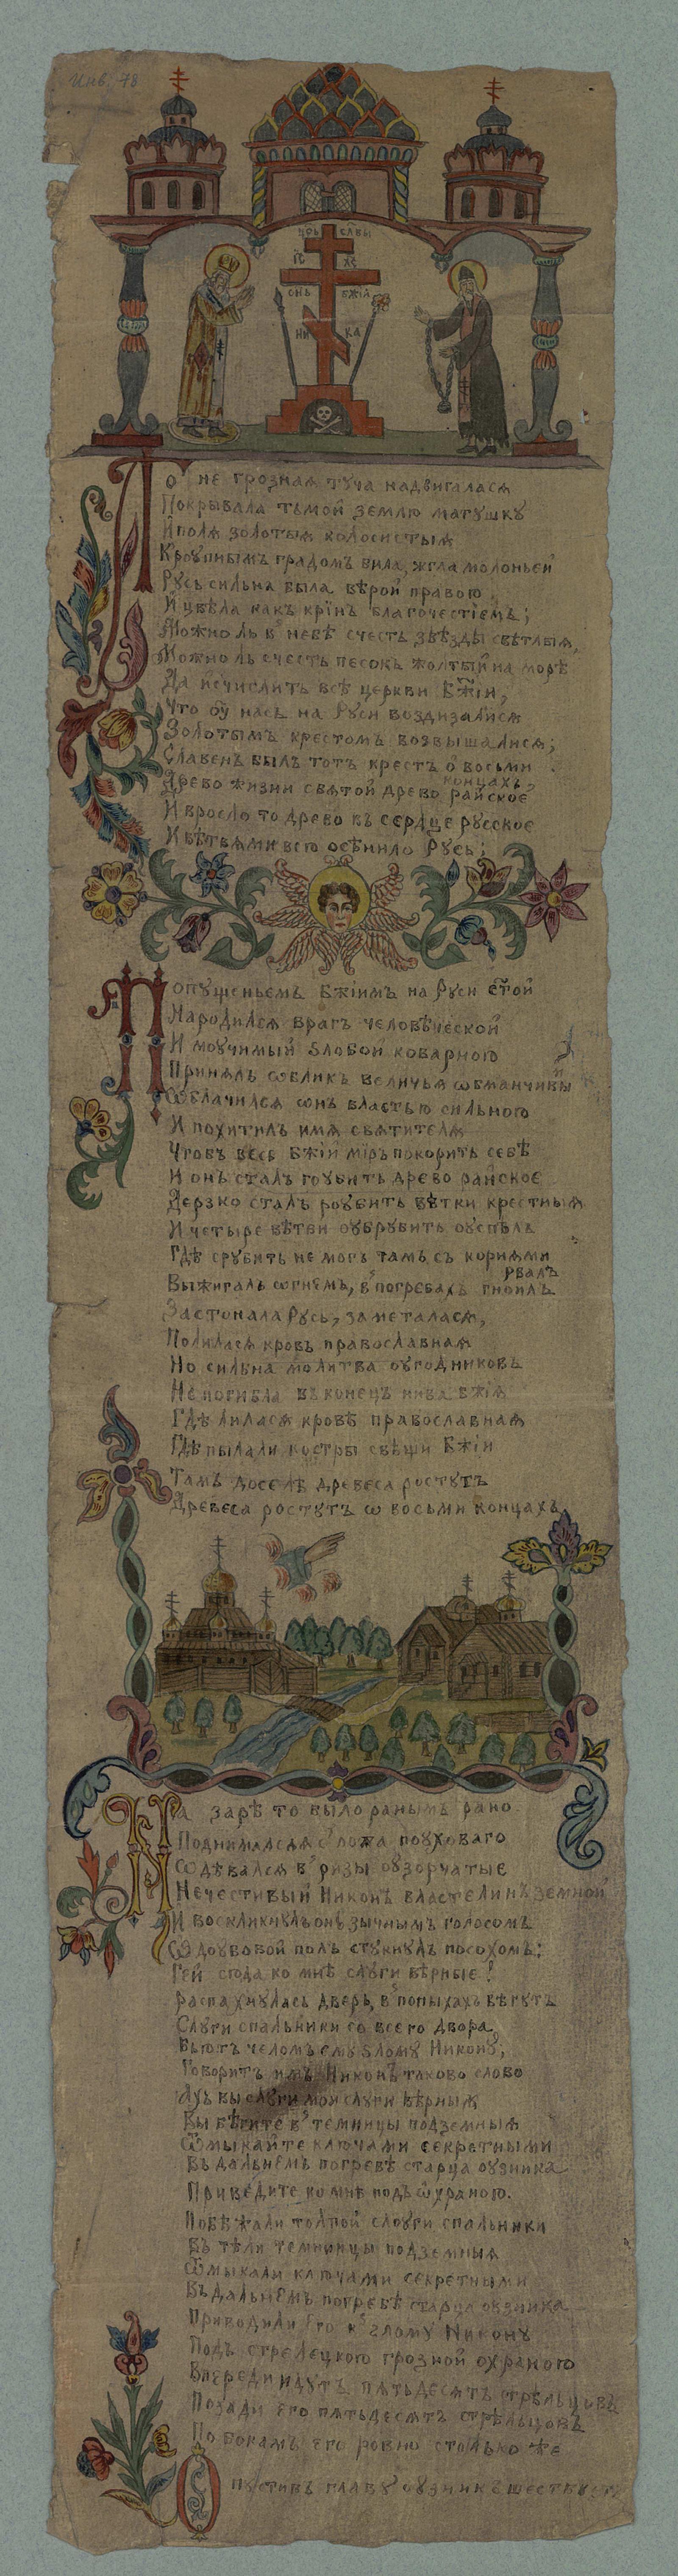 Инв. 78
Црь слвы
Іс Хс
снъ бжїй
ни ка
То не грозная туча надвигалася
Покрывала тьмой землю матушку
И поля золотыя колосистыя
Кроупнымъ градомъ била, жгла молоньей
Русь сильна была вѣрой правою.
И цвѣла какъ крїнъ благочестїемъ;
Можно ль в небѣ счесть звѣзды свѣтлыя,
Можно ль счесть песокъ жолтый на морѣ
Да исчислить всѣ церкви Бжїи,
Что оу насъ на Руси воздизалися
Золотымъ крестомъ возвышалися;
Славенъ былъ тотъ крестъ о восьми
концахъ,
Древо жизни святой древо райское
И вросло то древо въ сердце русское
И вѣтвями всю осѣнило Русь;
Попущеньемъ Бжїимъ на Руси стой
Народился врагъ человѣческой
И моучимый злобой коварною
Принялъ ѡбликъ величья ѡбманчивый
Ѡблачился ѡнъ властью сильного
И похитилъ имя святителя
Чтобъ весь Бжїй мїръ покорить себѣ
И онъ сталъ гоубить древо райское
Дерзко сталъ роубить вѣтки крестныя
И четыре вѣтви оубрубить оуспѣлъ
Гдѣ срубить не могъ тамъ съ корнями
рвалъ
Выжигалъ ѡгнемъ, в погребахъ гноилъ
Застонала Русь, заметалася,
Полилася кровь православная
Но сильна молитва оугодниковъ
Не погибла въ конецъ нива Бжїя
Гдѣ лилася кровь православная
Гдѣ пылали костры свѣщи Бжїи
Тамъ доселѣ древеса ростутъ
Древеса ростутъ ѡ восьми концахъ
На зарѣ то было ранымъ рано
Поднимался с ложа поуховаго
Ѡдѣвался в ризы оузорчатые
Нечестивый Никонъ властелинъ земной
И воскликнулъ онъ зычнымъ голосомъ
Ѡ доубовой полъ стукнулъ посохомъ:
Гей сюда ко мнѣ слуги вѣрные!
Распахнулась дверь, в попыхахъ бѣгутъ
Слуги спальники со всего двора,
Бьютъ челомъ ему злому Никону,
Говоритъ имъ Никонъ таково слово
Ахъ вы слуги мои слуги вѣрныя
Вы бѣгите в темницы подземныя
Ѿмыкайте ключами секретными
Въ дальнемъ погребѣ старца оузника
Приведите ко мнѣ подъ ѡхраною.
Побѣжали толпой слоуги спальники
Въ тѣ ли темницы подземныя
Ѿмыкали ключами секретными
Въ дальнемъ погребѣ старца оузника
Приводили его к злому Никону
Подъ стрелецкою грозной охраною
Впереди идутъ пятьдесятъ стрѣльцовъ
Позади его пятьдесятъ стрѣльцовъ
По бокамъ его ровно столько же
Опустивъ главу оузникъ шествуетъ